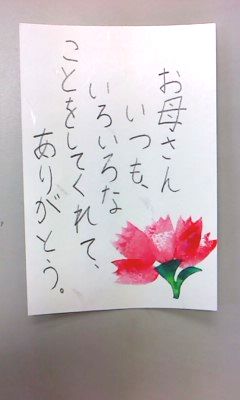 お母さん
いつも、
いろいろな
ことをしてくれて、
ありがとう。